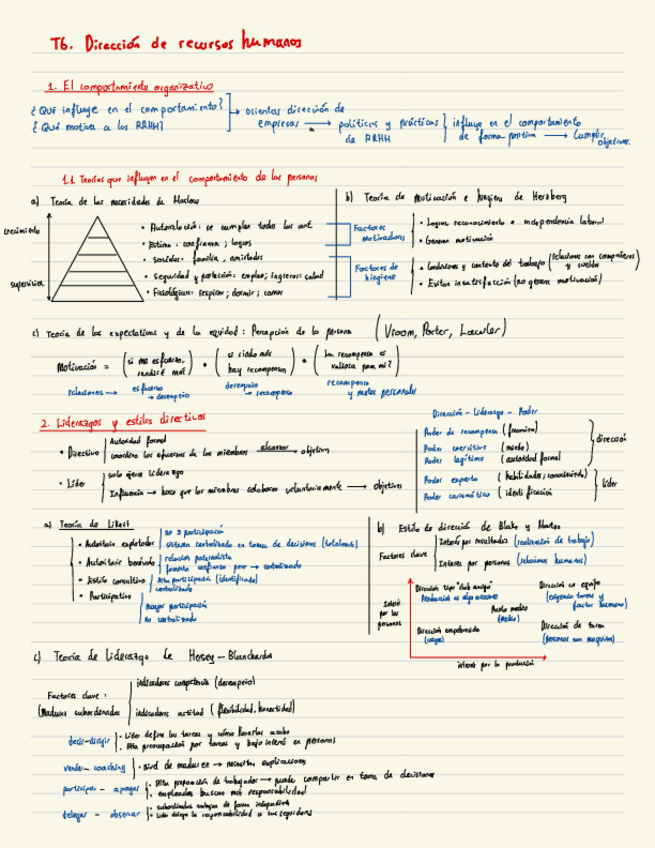 T6. Dirección de recursos humanos
1. El comportamiento organizativo
¿Qué influye en el comportamiento?
¿Qué motiva a los RRHH?
orientas dirección de
empresas → políticas y prácticas
de RRHH
influye en el comportamiento
de forma positiva → Cumplir
objetivos.
1.1 Teorías que influyen en el comportamiento de las personas
a) Teoría de las necesidades de Maslow
crecimiento
supervivencia
• Autorrealización: se cumplen todas las ant.
• Estima: confianza; logros
• sociales: familia, amistades
• Seguridad y protección: empleo; ingresos; salud
• Fisiológicas: respirar; dormir; comer
b) Teoría de Motivación e higiene de Herzberg
Factores
Motivadores
• Logros, reconocimiento e independencia laboral
• Generan motivación
Factores de
higiene
• Condiciones y contexto del trabajo (relaciones con compañeros
y sueldo)
• Evitan insatisfacción (no generan motivación)
c) Teoría de las expectativas y de la equidad: Percepción de la persona (Vroom, Porter, Lawler)
Motivación = (si me esfuerzo, rendiré más) • (si rindo más hay recompensa) • (La recompensa es valiosa para mí?)
relaciones → esfuerzo → desempeño
desempeño → recompensa
recompensa y metas personales
2. Liderazgos y estilos directivos
• Directivo
Autoridad formal
coordina los esfuerzos de los miembros alcanzar → objetivos
• Líder
solo ejerce liderazgo
Influencia → hace que los miembros colaboren voluntariamente → objetivos
Dirección - Liderazgo - Poder
Poder de recompensa (premios)
Poder coercitivo (miedo)
Poder legítimo (autoridad formal)
dirección
Poder experto (habilidades; conocimiento)
Poder carismático (identificación)
líder
a) Teoría de Likert
• Autoritario explotador
no a participación
sistema centralizado en toma de decisiones (totalmente)
• Autoritario benévolo
relación paternalista
fomenta confianza pero → centralizado
• Estilo consultivo
Alta participación (identificado)
centralizado
• Participativo
mayor participación
no centralizado
b) Estilo de dirección de Blake y Mouton
Factores clave
Interés por resultados (realización de trabajo)
Interés por personas (relaciones humanas)
Interés
por las
personas
Dirección tipo "club amigos"
Producción es algo accesorio
Dirección en equipo
(exigencia tareas y
factor humano)
Punto medio
(medio)
Dirección empobrecida
(vaga)
Dirección de tarea
(Personas son maquinas)
interés por la producción
c) Teoría de Liderazgo de Hersey-Blanchard
Factores clave:
(Madurez subordinados
indicadores competencia (desempeño)
indicadores actitud (flexibilidad, honestidad)
decir-dirigir
• Líder define las tareas y cómo llevarlas acabo
• Alta preocupación por tareas y bajo interés en personas
vender-coaching
• nivel de madurez → necesitan explicaciones
participar - apoyar
• Alta preparación de trabajador → puede compartir en toma de decisiones
• empleados buscan más responsabilidad
delegar - observar
• subordinados trabajan de forma independiente
• Líder delega la responsabilidad a sus seguidores